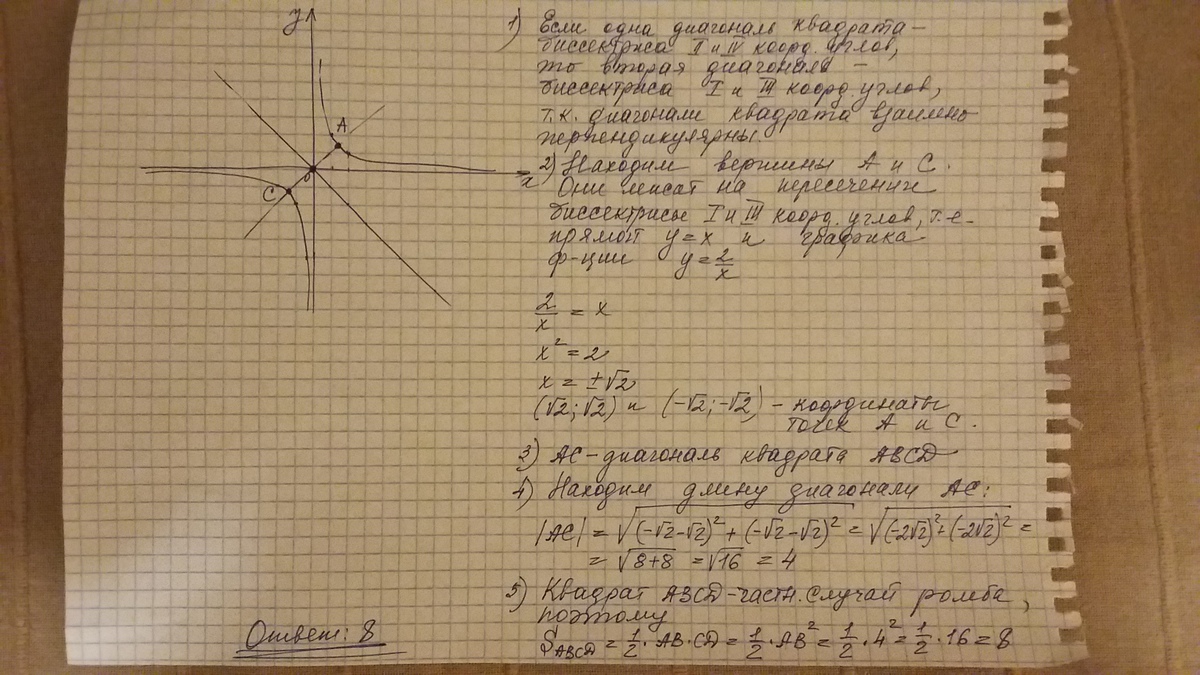 у
A
O
C
x
1) Если одна диагональ квадрата –
биссектриса II и IV коорд. углов,
то вторая диагональ –
биссектриса I и III коорд. углов,
т.к. диагонали квадрата взаимно
перпендикулярны.
2) Находим вершины A и C.
Они лежат на пересечении
биссектрисы I и III коорд. углов, т.е.
прямой y=x и графика
ф-ции y=2/x
2/x = x
x² = 2
x = ±√2
(√2; √2) и (-√2; -√2) – координаты
точек A и C.
3) AC – диагональ квадрата ABCD
4) Находим длину диагонали AC:
|AC| = √((-√2-√2)² + (-√2-√2)²) = √((-2√2)²+(-2√2)²) =
= √(8+8) = √16 = 4
5) Квадрат ABCD – частн. случай ромба,
поэтому
S_ABCD = 1/2 · AB · CD = 1/2 · AB² = 1/2 · 4² = 1/2 · 16 = 8
Ответ: 8